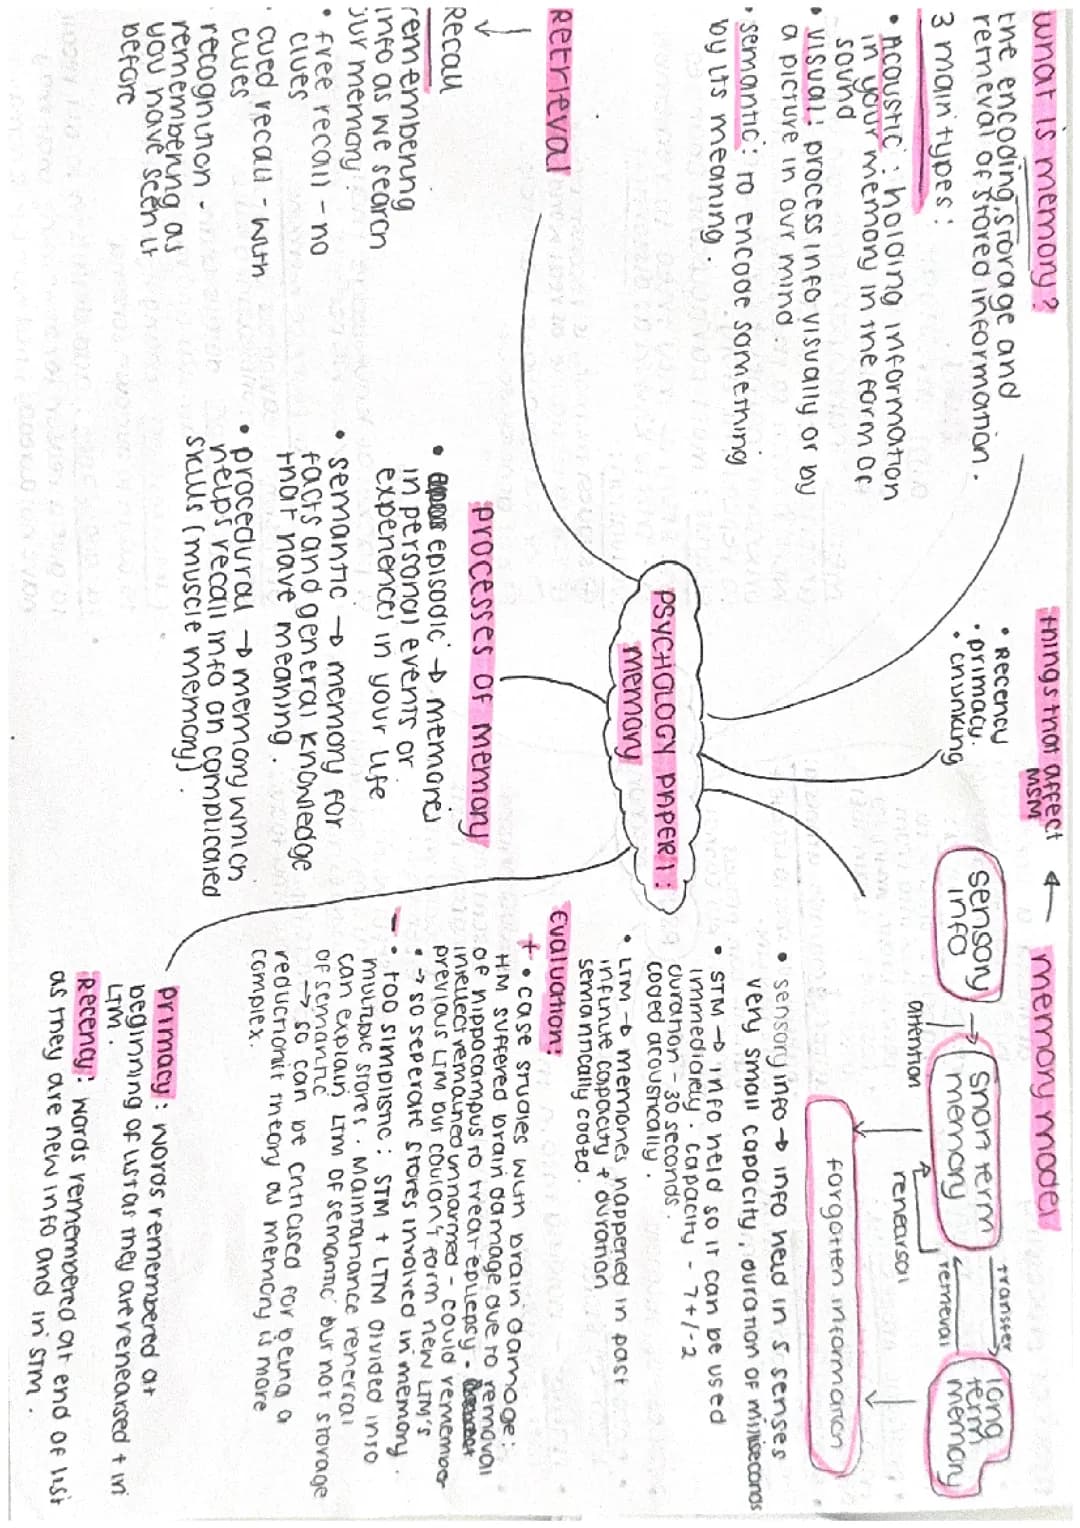 What is memory?
the encoding, storage and
retrieval of stored information.
3 main types:
• Acoustic: holding information
in your memory in the form of
sound
• visual: process info visually or by
a picture in our mind
• semantic: to encode something
by its meaning.
things that affect
MSM
• Recency
• primacy.
• chunking
memory model
sensory
info
attention
short term
memory
rehearsal
transfer
retrieval
long
term
memory
forgotten information
• sensory info → info held in 5 senses
very small capacity, duration of miliseconds
• STM → info held so it can be used
immediately. capacity - 7 +/- 2
duration - 30 seconds.
coded acoustically.
• LTM → memories happened in past
infinite capacity + duration
semantically coded.
Evaluation:
+ • case studies with brain damage:
HM suffered brain damage due to removal
of hippocampus to treat epilepsy.
intellect remained unharmed - could remember
previous LTM but couldn't form new LTM's
• → so seperate stores involved in memory.
- • too simplistic: STM + LTM divided into
multiple stores. Maintanance rehersal
can explain LTM of semantic but not storage
of semantic
→ so can be criticised for being a
reductionist theory as memory is more
complex.
PSYCHOLOGY PAPER 1:
memory
Retrieval
Recall
remembering
info as we search
our memory.
• free recall - no
clues
• cued recall - with
clues
recognition -
remembering as
you have seen it
before
processes of memory
• episodic → memories
in personal events or
experiences in your life
• semantic → memory for
facts and general knowledge
that have meaning.
• procedural → memory which
helps recall info on complicated
skills (muscle memory).
primacy: words remembered at
beginning of list as they are rehearsed + in
LTM.
Recency: words remembered at end of list
as they are new info and in STM.